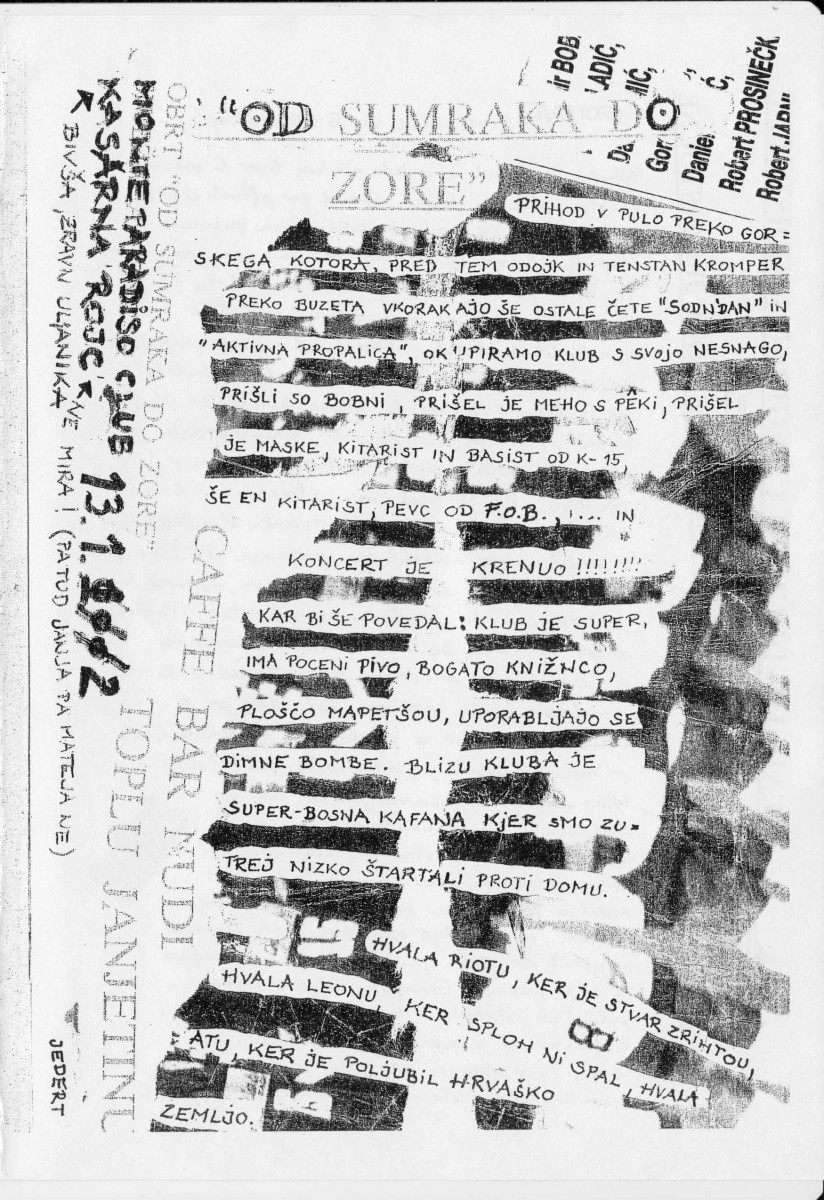 "OD SUMRAKA DO
ZORE"
PRIHOD V PULO PREKO GOR=
SKEGA KOTORA, PRED TEM ODOJK IN TENSTAN KROMPER
PREKO BUZETA VKORAKAJO ŠE OSTALE ČETE "SODN'DAN" IN
"AKTIVNA PROPALICA", OKUPIRAMO KLUB S SVOJO NESNAGO,
PRIŠLI SO BOBNI, PRIŠEL JE MEHO S PÊKI, PRIŠEL
JE MASKE, KITARIST IN BASIST OD K-15,
ŠE EN KITARIST, PEVC OD F.O.B., .... IN
KONCERT JE KRENUO !!!!!!!!
KAR BI ŠE POVEDAL: KLUB JE SUPER,
IMA POCENI PIVO, BOGATO KNIŽNCO,
PLOŠČO MAPETŠOU, UPORABLJAJO SE
DIMNE BOMBE. BLIZU KLUBA JE
SUPER-BOSNA KAFANA KJER SMO ZU=
TREJ NIZKO ŠTARTALI PROTI DOMU.
HVALA RIOTU, KER JE STVAR ZRIHTOU,
HVALA LEONU, KER SPLOH NI SPAL, HVALA
ATU, KER JE POLJUBIL HRVAŠKO
ZEMLJO.
MONTEPARADISO CLUB 13.1.2002
KASARNA ROJC
BIVŠA, ZRAVN ULJANIKA
NE MIRA! (PA TUD JANJA PA MATEJA NE)
JEDERT
OBRT "OD SUMRAKA DO ZORE"
CAFFE BAR NUDI
TOPLU JANJETINU
BOB
Gor
Daniel
Robert PROSINEČK
Robert JARNI
8